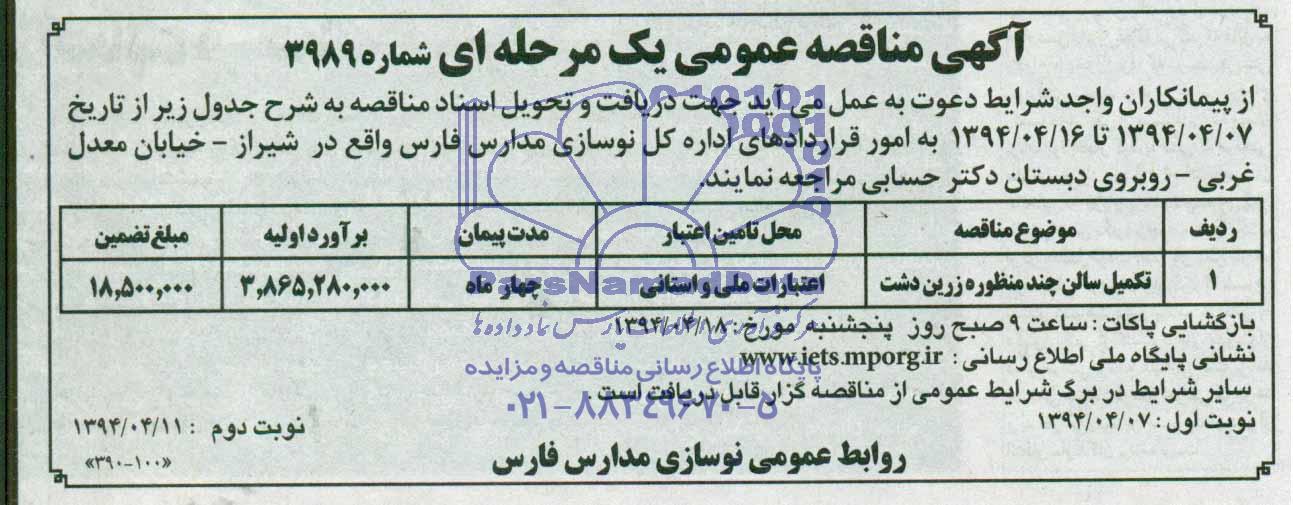 آگهی مناقصه عمومی یک مرحله ای شماره ۳۹۸۹
از پیمانکاران واجد شرایط دعوت به عمل می آید جهت دریافت و تحویل اسناد مناقصه به شرح جدول زیر از تاریخ
۱۳۹۴/۰۴/۰۷ تا ۱۳۹۴/۰۴/۱۶ به امور قراردادهای اداره کل نوسازی مدارس فارس واقع در شیراز - خیابان معدل
غربی - روبروی دبستان دکتر حسابی مراجعه نمایند.
ردیف موضوع مناقصه محل تامین اعتبار مدت پیمان برآورد اولیه مبلغ تضمین
۱ تکمیل سالن چند منظوره زرین دشت اعتبارات ملی و استانی چهار ماه ۳,۸۶۵,۲۸۰,۰۰۰ ۱۸,۵۰۰,۰۰۰
بازگشایی پاکات : ساعت ۹ صبح روز پنجشنبه مورخ : ۱۳۹۴/۰۴/۱۸
نشانی پایگاه ملی اطلاع رسانی : www.iets.mporg.ir
سایر شرایط در برگ شرایط عمومی از مناقصه گزار قابل دریافت است .
نوبت اول : ۱۳۹۴/۰۴/۰۷ نوبت دوم : ۱۳۹۴/۰۴/۱۱
روابط عمومی نوسازی مدارس فارس
«۳۹۰-۱۰۰»
ParsNamadData
پایگاه اطلاع رسانی مناقصه و مزایده
۰۲۱-۸۸۳۴۹۶۷۰-۵